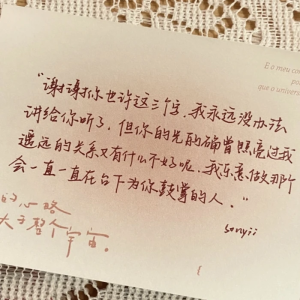 E o meu
que o univers
“谢谢你也许这三个字，我永远没办法
讲给你听了，但你的光的确曾照亮过我
遥远的关系又有什么不好呢，我乐意做那个
会一直一直在台下为你鼓掌的人。”
sonyii
的心路
大于整个宇宙。